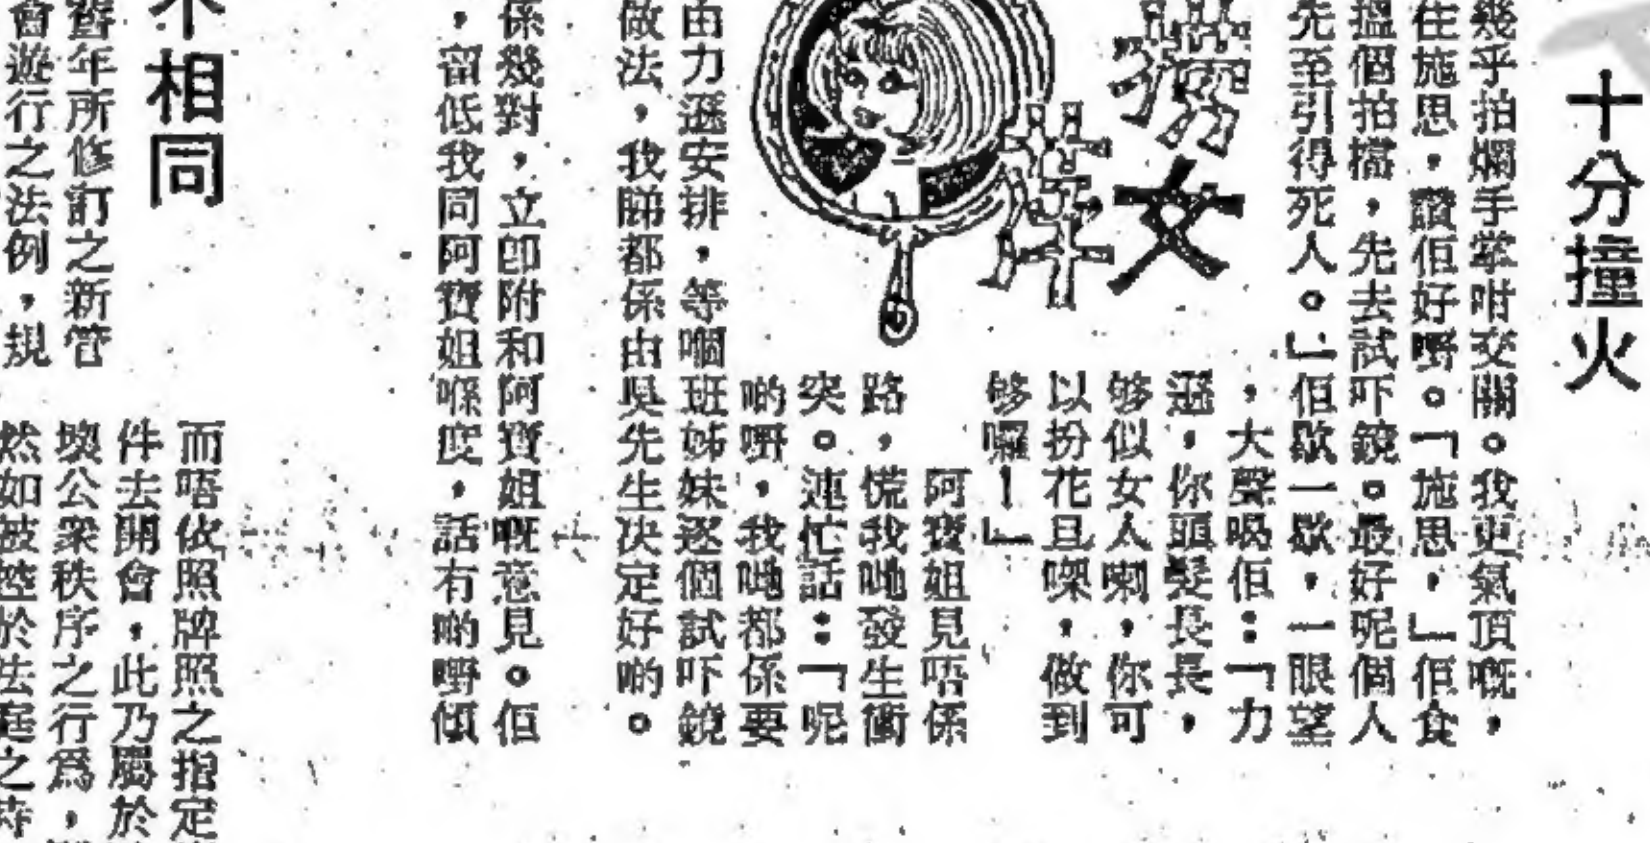 十分撞火
幾乎拍爛手掌咁交關。我更氣頂嘅,
住施思,讚佢好嘢。「施思,」佢食
搵個拍檔,先去試吓鏡。最好呢個人
先至引得死人。」佢歇一歇,一眼望
,大聲喝佢:「力
遜,你頭髮長長,
够似女人喇,你可
以扮花旦㗎,做到
够囉!」
撈女
阿寶姐見唔係
路,慌我哋發生衝
突。連忙話:「呢
啲嘢,我哋都係要
由力遜安排,等嗰班姊妹逐個試吓鏡
做法,我睇都係由吳先生决定好啲。
係幾對,立即附和阿寶姐嘅意見。佢
,留低我同阿寶姐喺度,話有啲嘢傾
不相同
而唔依照牌照之指定
件去開會,此乃屬於
壞公衆秩序之行爲,
然如被控於法庭之時
年所修訂之新管
會遊行之法例,規